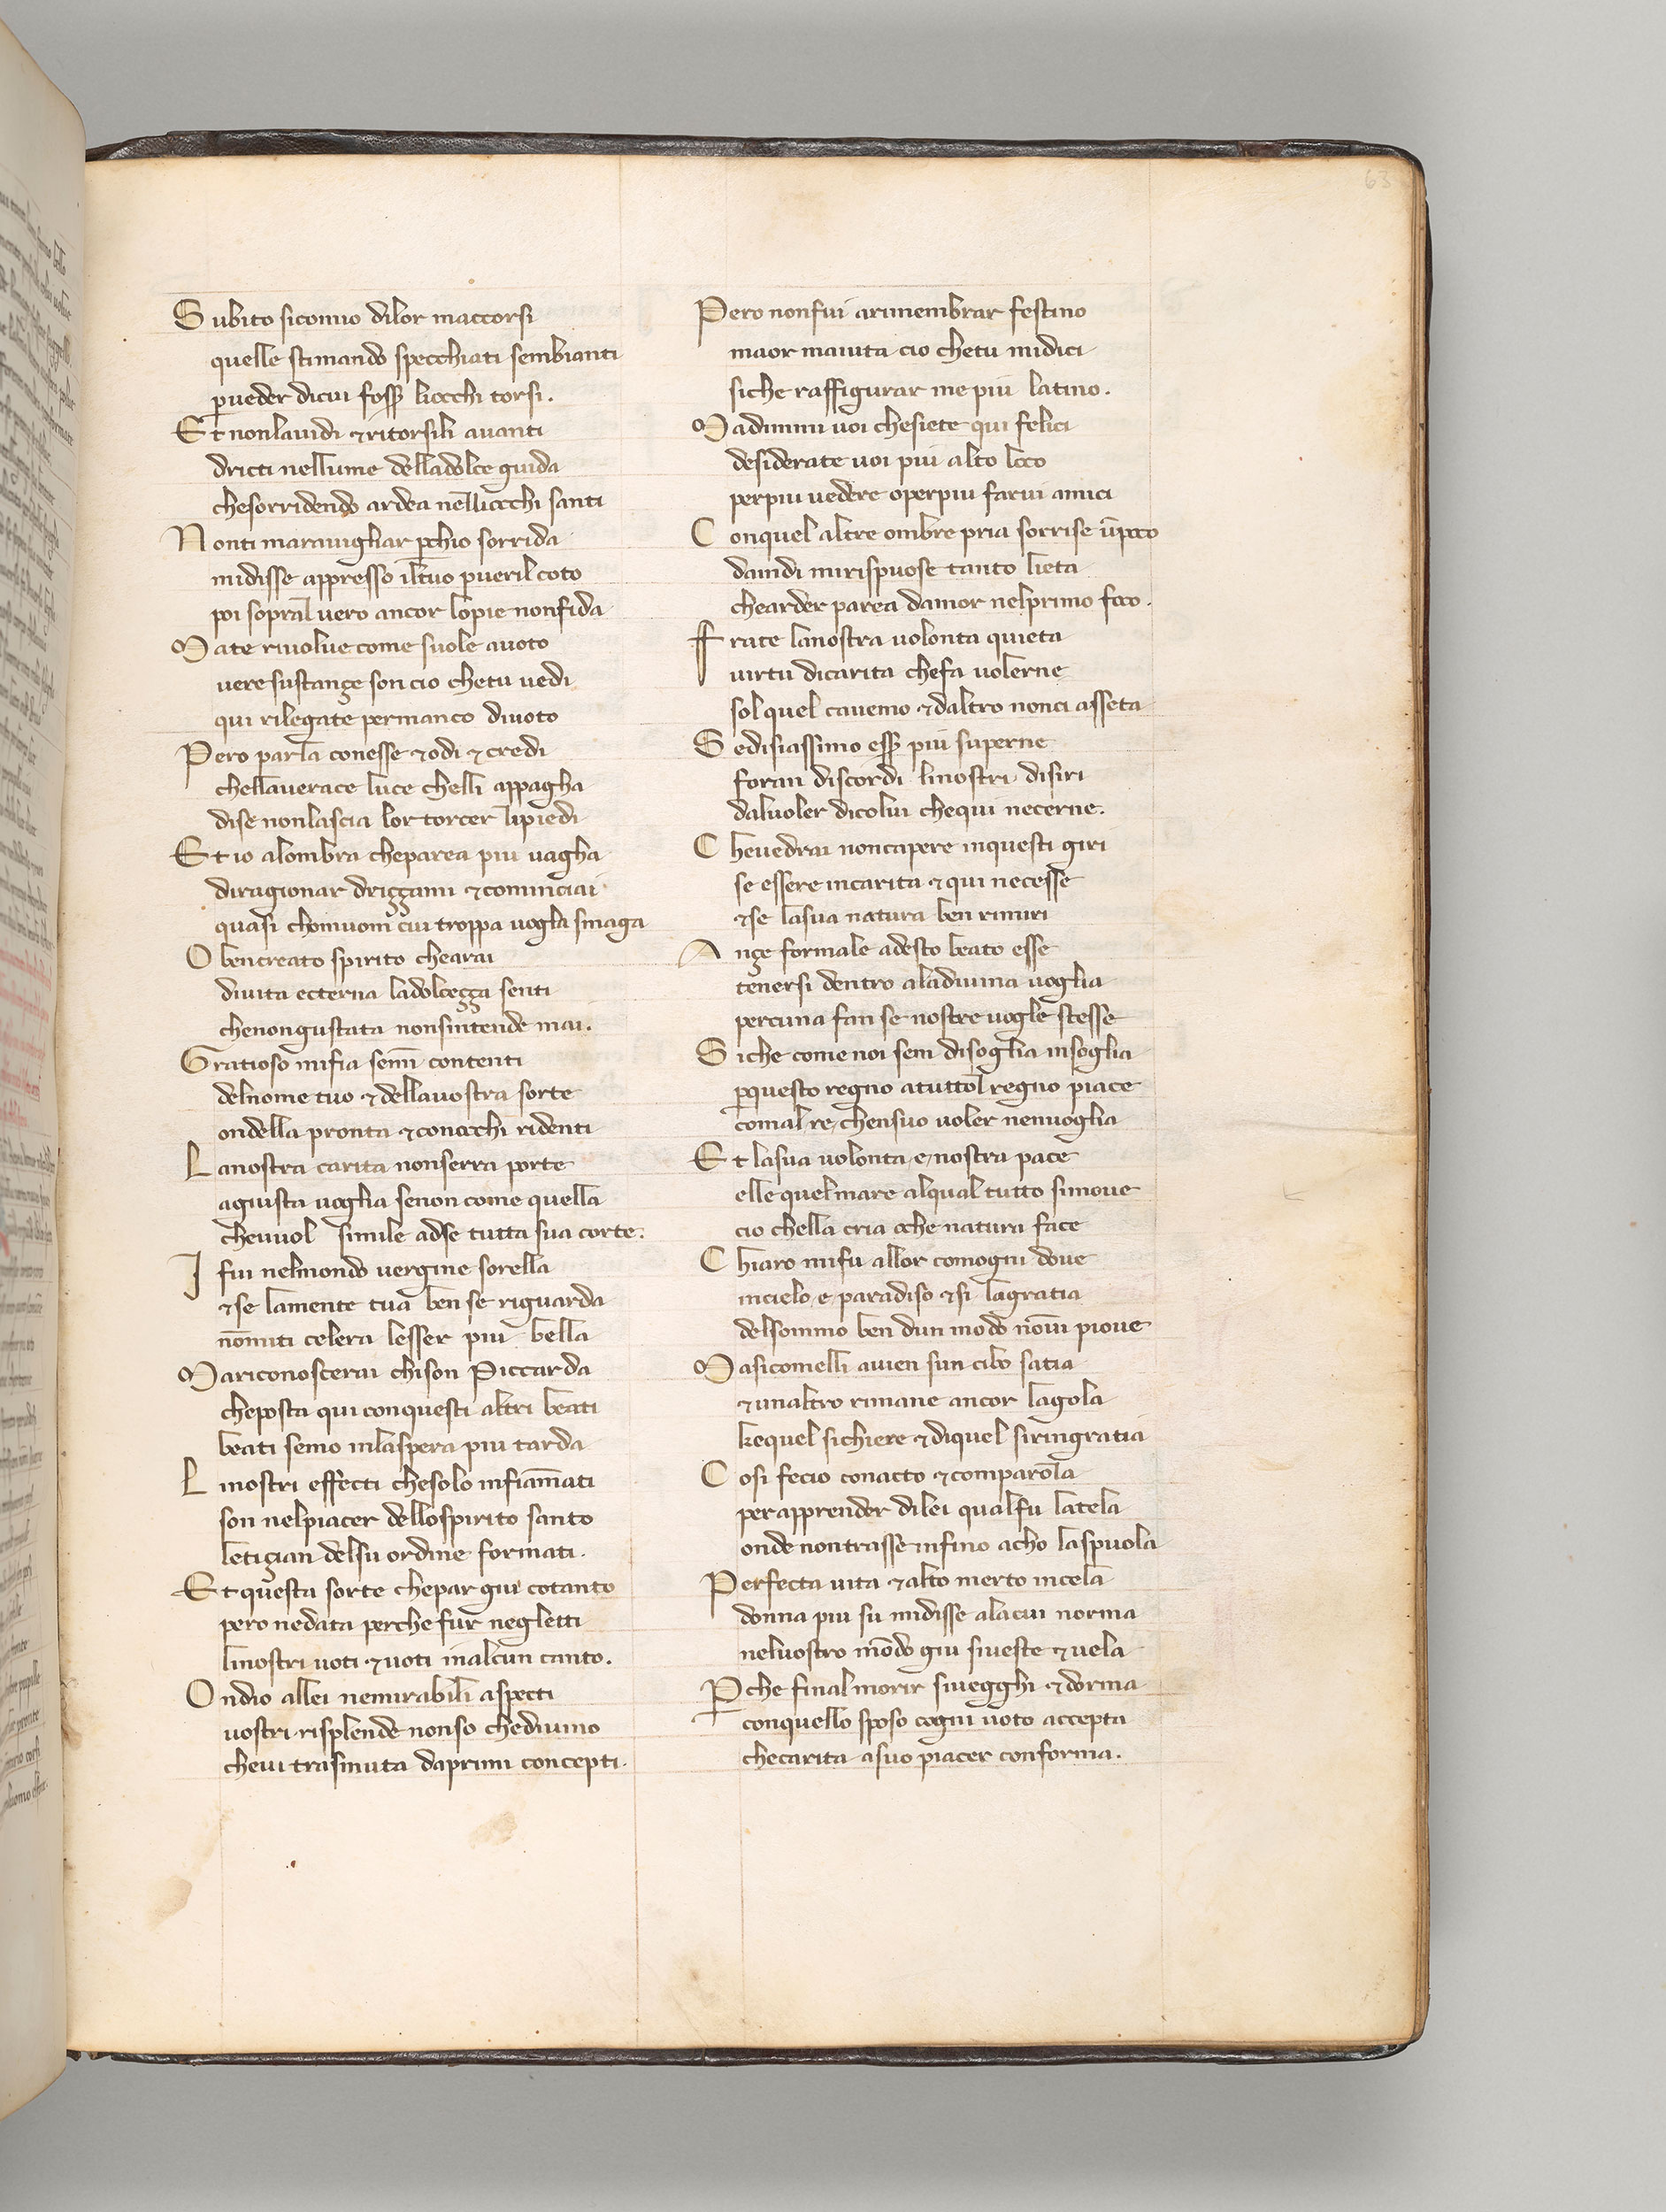 63
Subito sicomio dilor maccorsi
quelle stimando specchiati sembianti
p̱ueder dicui foss̱ liocchi torsi.
Et nonlauidi ⁊ ritorsili auanti
dricti nellume delladolce guida
chesorridendo ardea nell̄iocchi santi
Nonti marauigliar ꝑchio sorrida
midisse appresso iltuo pueril coto
poi sopral uero ancor lopie nonfida
Mate riuolue come suole auoto
uere sustançe son cio chetu uedi
qui rilegate per manco diuoto
Pero parla conesse ⁊ odi ⁊ credi
chellauerace luce chelli appagha
dise nonlascia lor torcer lipiedi
Et io alombra cheparea piu uagha
diragionar driççami ⁊ cominciai
quasi chomuom cui troppa uogla smaga
O bencreato spirito chearai
diuita ecterna ladolceçça senti
chenongustata nonsintende mai.
Gratioso mifia semī contenti
delnome tuo ⁊ dellauostra sorte
ondella pronta ⁊ conocchi ridenti
Lanostra carita nonserra porte
agiusta uoglia senon come quella
cheuuol simile adse tutta sua corte.
I fui nelmondo uergine sorella
⁊ se lamente tua ben se riguarda
nōmiti celera lesser piu bella
Mariconoscerai chison Piccarda
cheposta qui conquesti altri beati
beati semo inlaspera piu tarda
Linostri effecti chesolo infiam̄ati
son nelpiacer dellospirito santo
letiçian delsu ordine formati.
Et questa sorte chepar giu cotanto
pero nedata perche fur negletti
linostri uoti ⁊ uoti inalcun canto.
Ondio allei nemirabili aspecti
uostri risplende nonso chediuino
cheui trasmuta daprimi concepti.
Pero nonfui arimembrar festino
maor maiuta cio chetu midici
siche raffigurar me piu latino.
Madimmi uoi chesiete qui felici
desiderate uoi piu alto loco
perpiu uedere operpiu farui amici
Conquel altre ombre pria sorrise ūpoco
daindi mirispuose tanto lieta
chearder parea damor nelprimo foco.
Frate lanostra uolonta quieta
uirtu dicarita chefa uolerne
sol quel cauemo ⁊ daltro nonci asseta
Sedisiassimo ess̱ piu superne
foran discordi linostri disiri
daluoler dicolui chequi necerne.
Cheuedrai noncapere inquesti giri
se essere incarita ⁊ qui necesse
⁊ se lasua natura ben rimiri
Ançe formale adesto beato esse
tenersi dentro aladiuina uoglia
percuna fan se nostre uogle stesse
Siche come noi sem disoglia insoglia
ꝑquesto regno atuttol regno piace
comal re chensuo uoler neinuoglia
Et lasua uolonta e nostra pace
elle quel mare alqual tutto simoue
cio chella cria oche natura face
Chiaro mifu allor comogni doue
incielo e paradiso ⁊ si lagratia
delsommo ben dun modo nōui pioue
Masicomelli auien sun cibo satia
⁊ unaltro rimane ancor lagola
kequel sichiere ⁊ diquel siringratia
Cosi fecio conacto ⁊ comparola
perapprender dilei qualfu latela
onde nontrasse infino acho laspuola
Perfecta uita ⁊ alto merto incela
donna piu su midisse alacui norma
neluostro mōdo giu siueste ⁊ uela
Pche final morir siuegghi ⁊ dorma
conquello sposo cogni uoto accepta
checarita asuo piacer conforma.